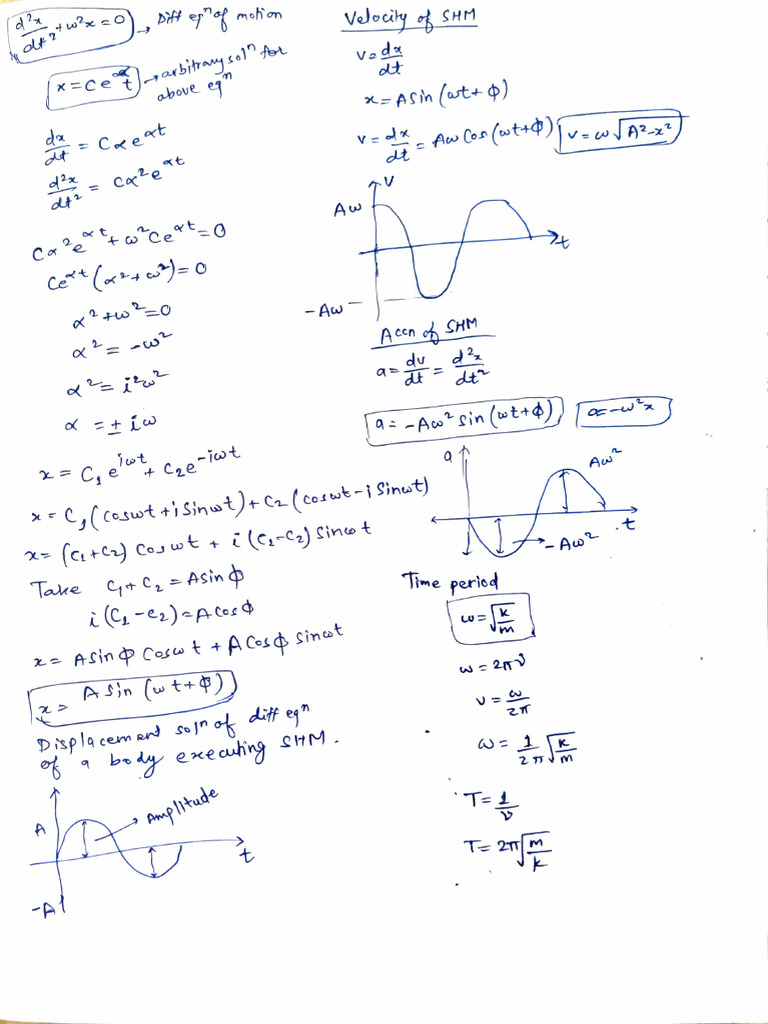 d²x/dt² + ω²x = 0 → Diff eqⁿ of motion
x = Ce^αt → arbitrary solⁿ for
above eqⁿ
dx/dt = Cαe^αt
d²x/dt² = Cα²e^αt
Cα²e^αt + ω²Ce^αt = 0
Ce^αt (α² + ω²) = 0
α² + ω² = 0
α² = -ω²
α² = i²ω²
α = ± iω
x = C₁e^iωt + C₂e^-iωt
x = C₁(cosωt + i Sinωt) + C₂(cosωt - i Sinωt)
x = (C₁+C₂) Cosωt + i(C₁-C₂) Sinωt
Take C₁ + C₂ = A sin ϕ
i(C₁ - C₂) = A cos ϕ
x = A sin ϕ Cos ωt + A Cos ϕ sin ωt
x = A sin (ωt + ϕ)
Displacement solⁿ of diff eqⁿ
of a body executing SHM.
A
Amplitude
t
-A
Velocity of SHM
v = dx/dt
x = A sin (ωt + ϕ)
v = dx/dt = Aω Cos (ωt + ϕ) v = ω√(A²-x²)
v
Aω
t
-Aω
Accn of SHM
a = dv/dt = d²x/dt²
a = -Aω² sin (ωt + ϕ) a = -ω²x
a
Aω²
t
-Aω²
Time period
ω = √(k/m)
ω = 2πν
ν = ω/2π
ω = 1/2π √(k/m)
T = 1/ν
T = 2π√(m/k)